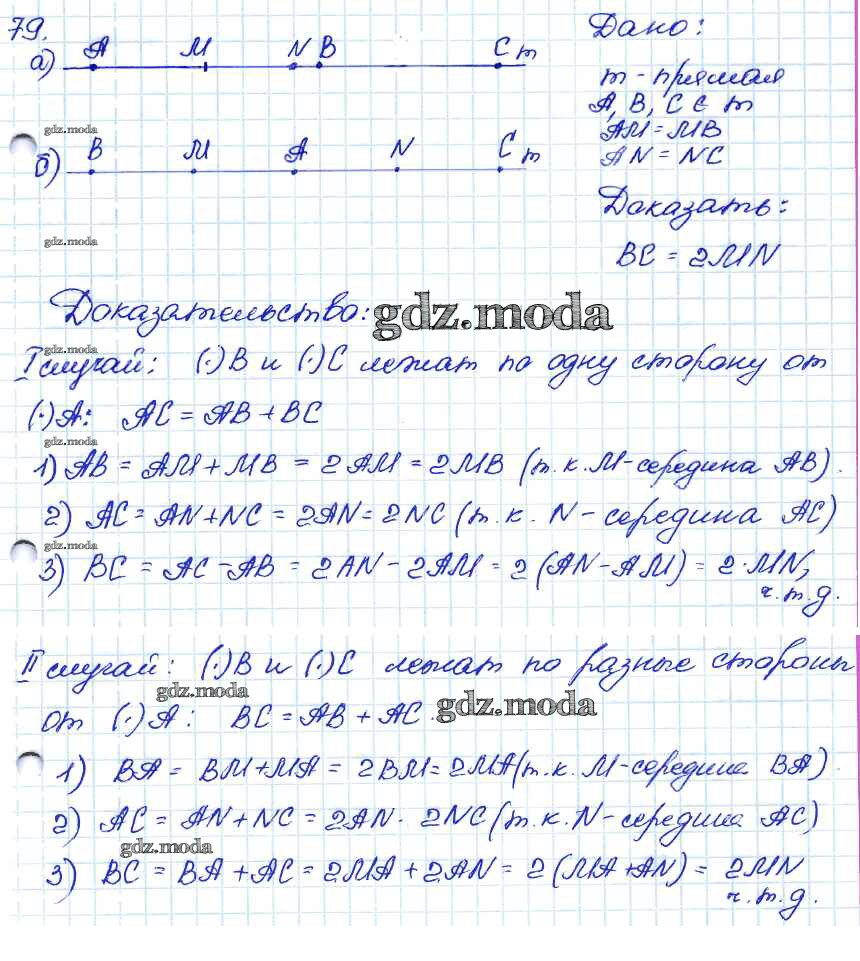 79.
а) A M N B C m
Дано:
m - прямая
A, B, C ∈ m
AM = MB
AN = NC
gdz.moda
б) B M A N C m
Доказать:
BC = 2MN
gdz.moda
Доказательство: gdz.moda
gdz.moda
I случай: (·)B и (·)C лежат по одну сторону от
(·)A: AC = AB + BC
gdz.moda
1) AB = AM + MB = 2AM = 2MB (т.к. M-середина AB).
2) AC = AN + NC = 2AN = 2NC (т.к. N-середина AC)
gdz.moda
3) BC = AC - AB = 2AN - 2AM = 2(AN - AM) = 2·MN,
ч.т.д.
II случай: (·)B и (·)C лежат по разные стороны
gdz.moda
от (·)A: BC = AB + AC. gdz.moda
1) BA = BM + MA = 2BM = 2MA (т.к. M-середина BA).
2) AC = AN + NC = 2AN · 2NC (т.к. N-середина AC)
gdz.moda
3) BC = BA + AC = 2MA + 2AN = 2(MA + AN) = 2MN
ч.т.д.